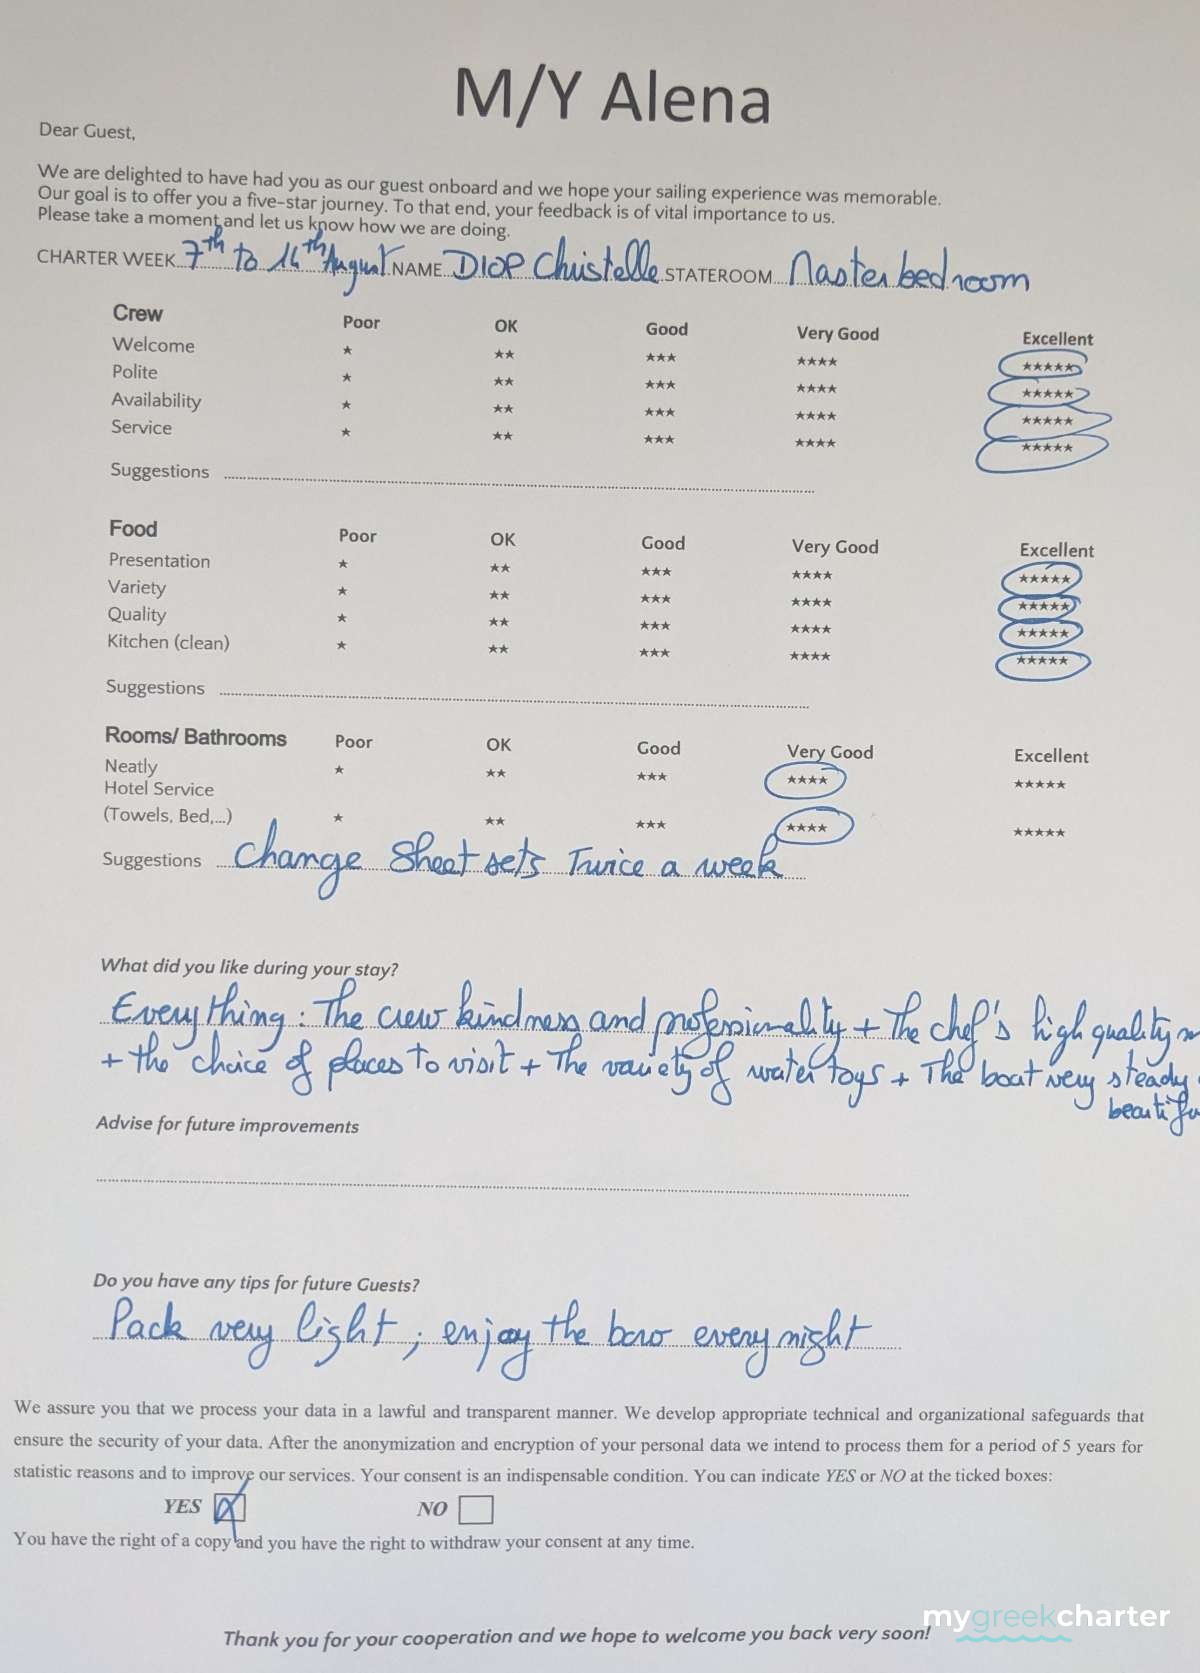 M/Y Alena
Dear Guest,
We are delighted to have had you as our guest onboard and we hope your sailing experience was memorable.
Our goal is to offer you a five-star journey. To that end, your feedback is of vital importance to us.
Please take a moment and let us know how we are doing.
CHARTER WEEK 7th to 14th August NAME DIOP Christelle STATEROOM Master bedroom
Crew Poor OK Good Very Good Excellent
Welcome ★ ★★ ★★★ ★★★★ ★★★★★
Polite ★ ★★ ★★★ ★★★★ ★★★★★
Availability ★ ★★ ★★★ ★★★★ ★★★★★
Service ★ ★★ ★★★ ★★★★ ★★★★★
Suggestions
Food Poor OK Good Very Good Excellent
Presentation ★ ★★ ★★★ ★★★★ ★★★★★
Variety ★ ★★ ★★★ ★★★★ ★★★★★
Quality ★ ★★ ★★★ ★★★★ ★★★★★
Kitchen (clean) ★ ★★ ★★★ ★★★★ ★★★★★
Suggestions
Rooms/ Bathrooms Poor OK Good Very Good Excellent
Neatly ★ ★★ ★★★ ★★★★ ★★★★★
Hotel Service
(Towels, Bed,...) ★ ★★ ★★★ ★★★★ ★★★★★
Suggestions Change Sheet sets Twice a week
What did you like during your stay?
Everything : The crew kindness and professionnality + The chef's high quality
+ the choice of places to visit + The variety of water toys + The boat very steady
Advise for future improvements
Do you have any tips for future Guests?
Pack very light ; enjoy the bow every night
We assure you that we process your data in a lawful and transparent manner. We develop appropriate technical and organizational safeguards that
ensure the security of your data. After the anonymization and encryption of your personal data we intend to process them for a period of 5 years for
statistic reasons and to improve our services. Your consent is an indispensable condition. You can indicate YES or NO at the ticked boxes:
YES NO
You have the right of a copy and you have the right to withdraw your consent at any time.
mygreekcharter
Thank you for your cooperation and we hope to welcome you back very soon!